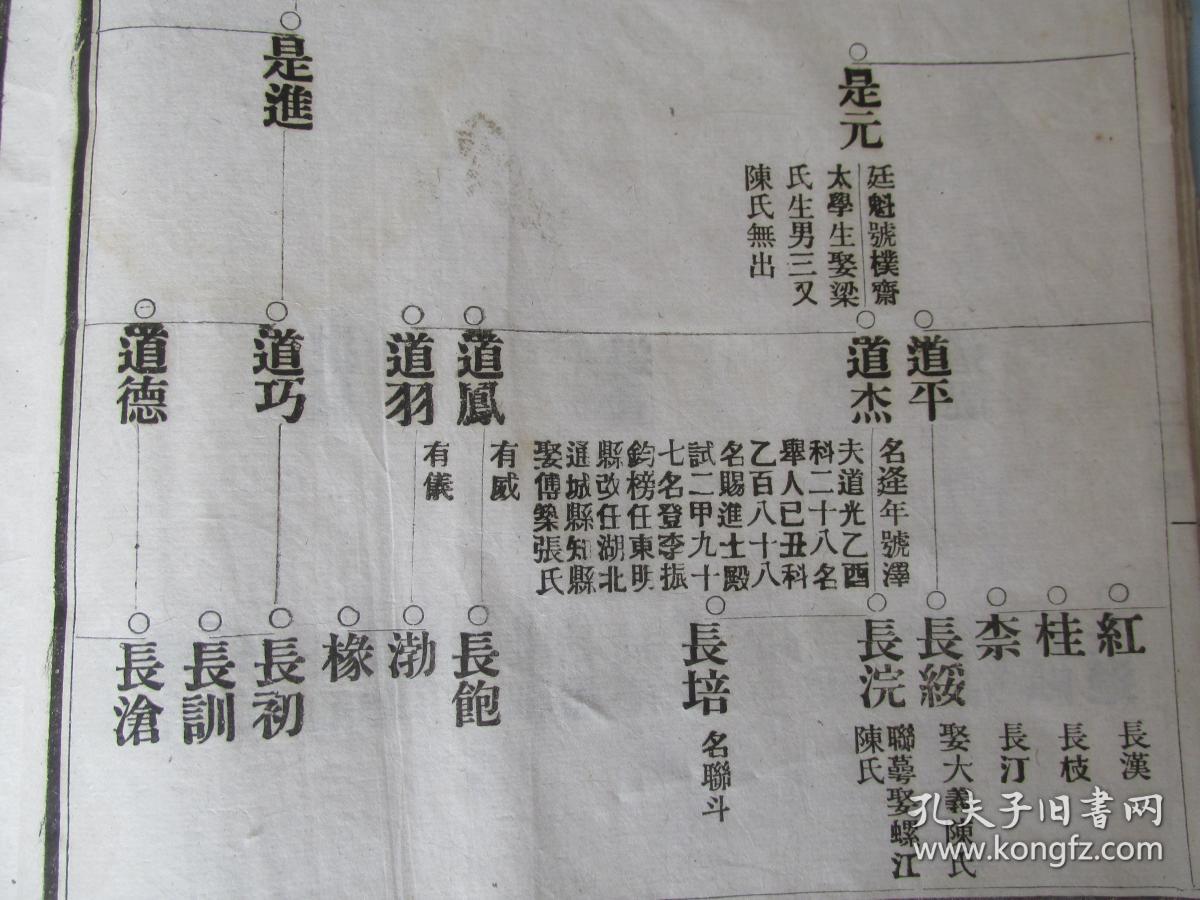 是元
廷魁號樸齋
太學生娶梁
氏生男三又
陳氏無出
是進
道平
道杰
名逢年號澤
夫道光乙酉
科二十八名
舉人己丑科
乙百八十八
名賜進士殿
試二甲九十
七名登李振
鈞榜任東明
縣改任湖北
通城縣知縣
娶傅築張氏
道鳳
有威
道羽
有儀
道巧
道德
紅
長漢
桂
長枝
柰
長汀
長綏
娶大義陳氏
長浣
聯萼娶螺江
陳氏
長培
名聯斗
長飽
渤
椽
長初
長訓
長滄
孔夫子旧书网
www.kongfz.com